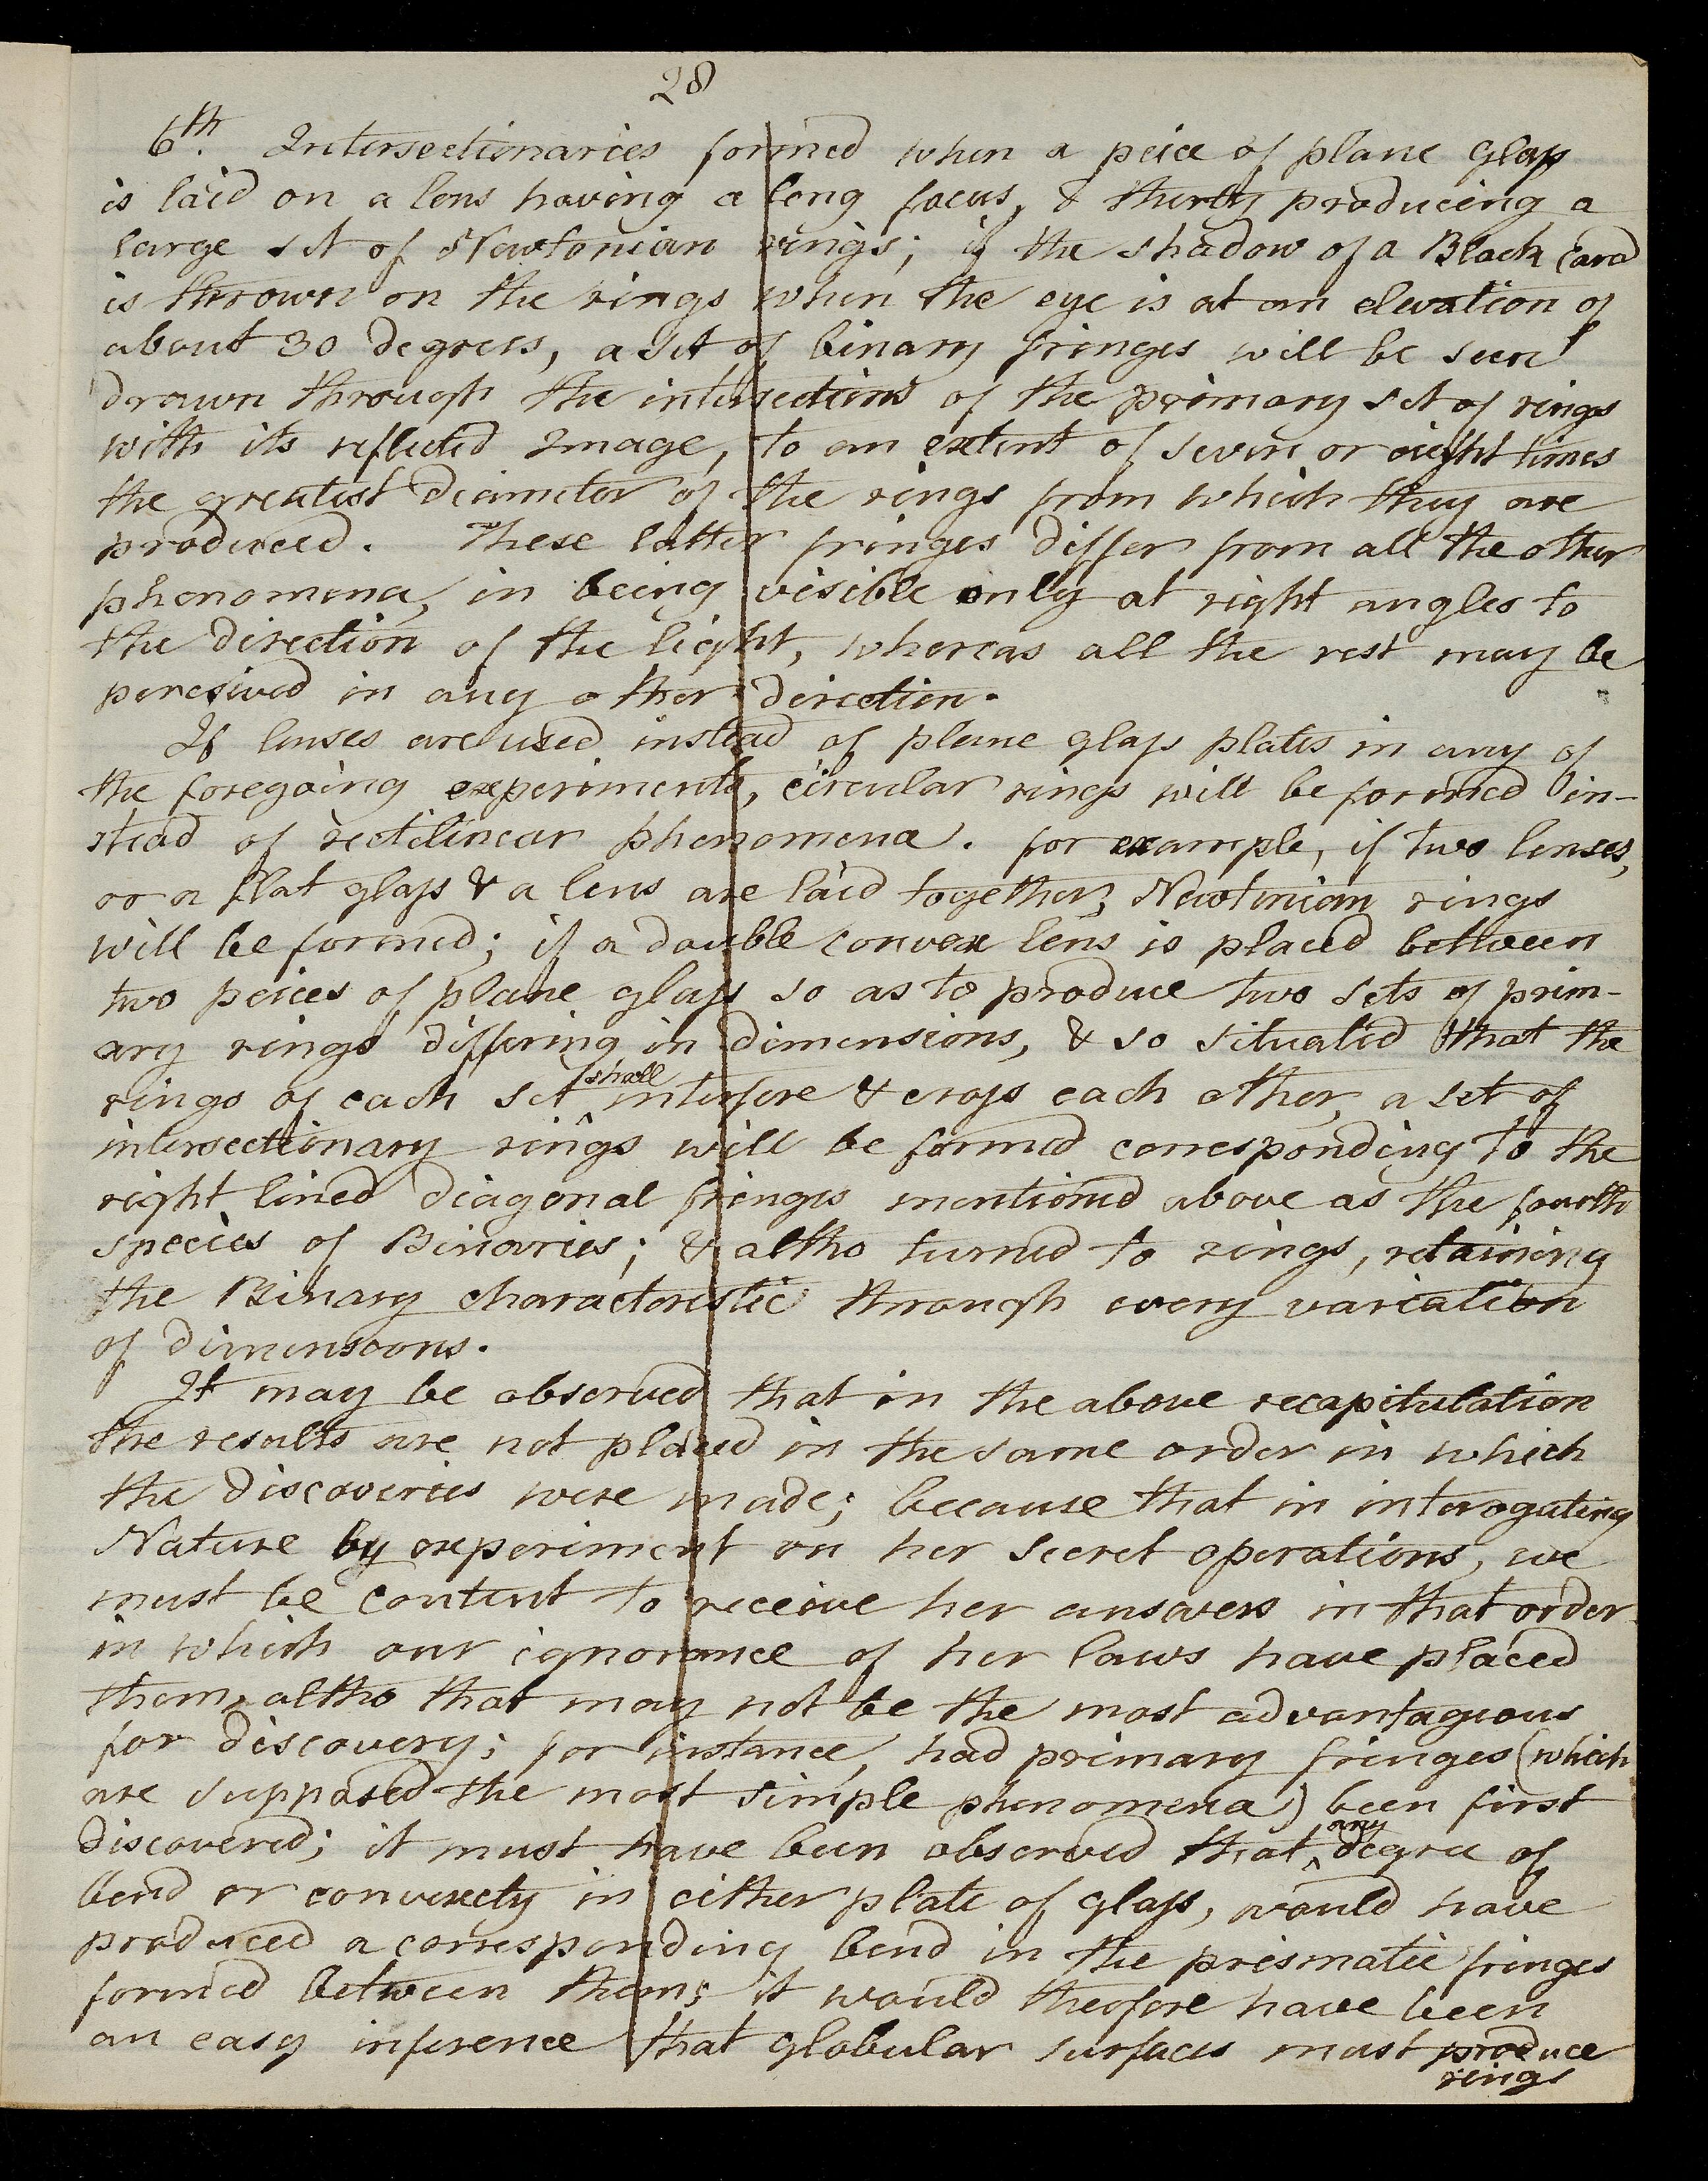 28
6th. Intersectionaries formed when a peice of plane Glass
is laid on a lens having a long focus, & therby producing a
large set of Newtonian rings; if the shadow of a Black Card
is thrown on the rings when the eye is at an elevation of
about 30 degrees, a set of binary fringes will be seen
drawn through the intersections of the primary set of rings
with its reflected Image, to an extent of seven or eight times
the greatest diameter of the rings from which they are
produced. These latter fringes differ from all the other
phenomena, in being visible only at right angles to
the direction of the light, whereas all the rest may be
perceived in any other direction.
If lenses are used instead of plane glass plates in any of
the foregoing experiments, circular rings will be formed in-
stead of rectilinear phenomena. for example, if two lenses,
or a flat glass & a lens are laid together, Newtonian rings
will be formed; if a double convex lens is placed between
two peices of plane glass so as to produce two sets of prim-
ary rings differing in dimensions, & so situated that the
rings of each set ^shall interfere & cross each other, a set of
intersectionary rings will be formed corresponding to the
right lined diagonal fringes mentioned above as the fourth
species of Binaries; & altho turned to rings, retaining
the Binary characteristic through every variation
of dimensions.
It may be observed that in the above recapitulation
the results are not placed in the same order in which
the discoveries were made; because that in interogating
Nature by experiment on her secret operations, we
must be content to receive her answers in that order
in which our ignorance of her laws have placed
them, altho that may not be the most advantaguous
for discovery; for instance, had primary fringes (which
are supposed the most simple phenomena) been first
discovered; it must have been observed that ^any degree of
bend or convexety in either plate of glass, would have
produced a corresponding bend in the prismatic fringes
formed between them; it would therfore have been
an easy inference that globular surfaces must produce
rings